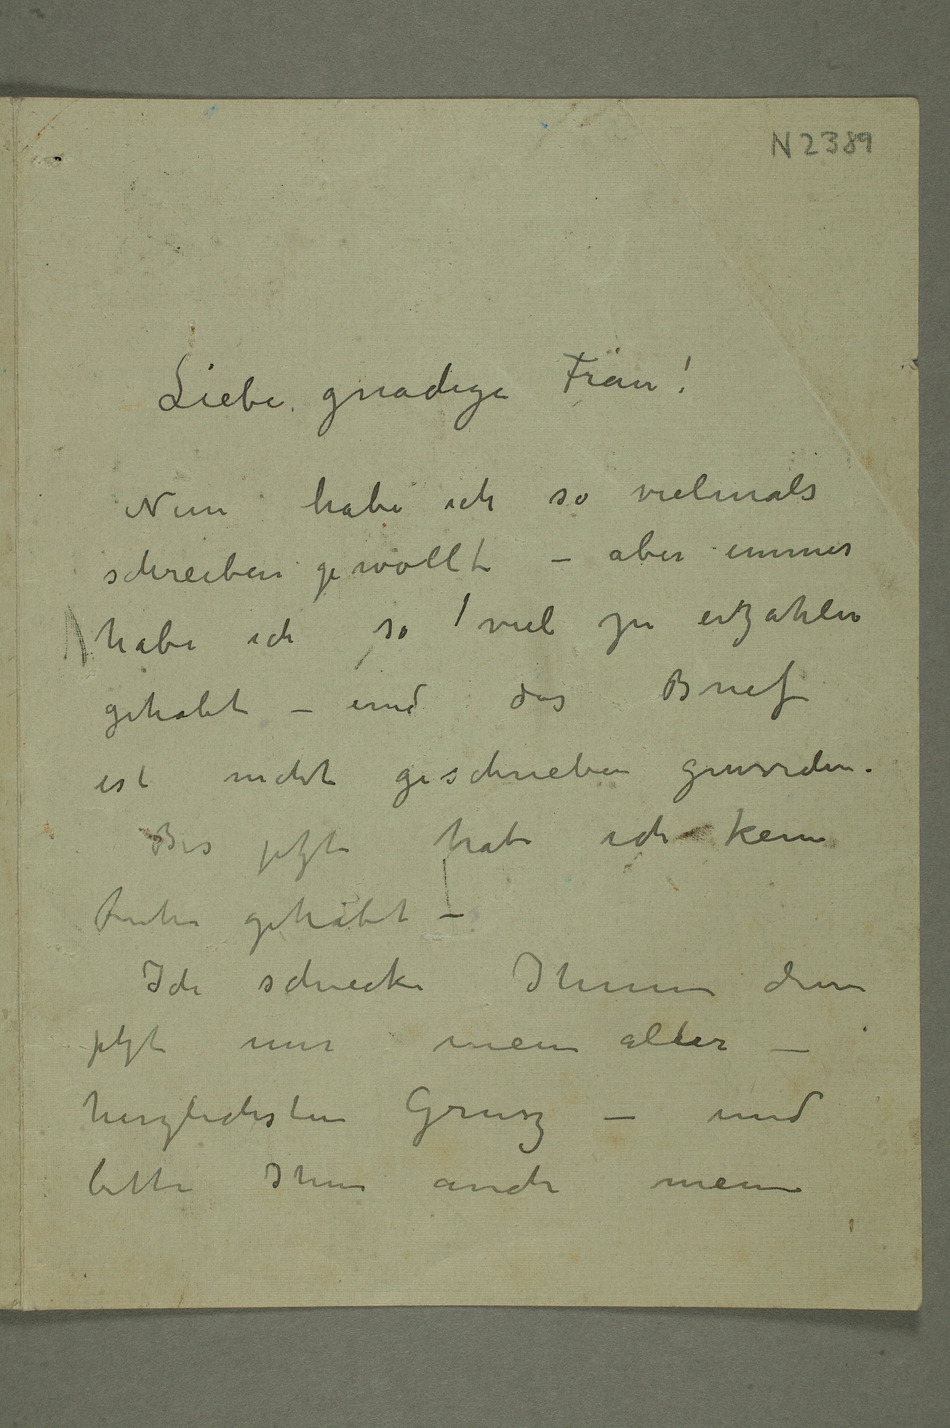 N 2389
Liebe gnadige Frau!
Nun habe ich so vielmals
schreiben gewollt – aber immer
habe ich so viel zu erzahlen
gehabt – und das Brief
ist nicht geschrieben geworden.
Bis jetzt habe ich kein
Ruhe gehabt –
Ich schicke Ihnen denn
jetzt nur mein aller –
herzlichsten Grusz – und
bitte Ihnen auch mein